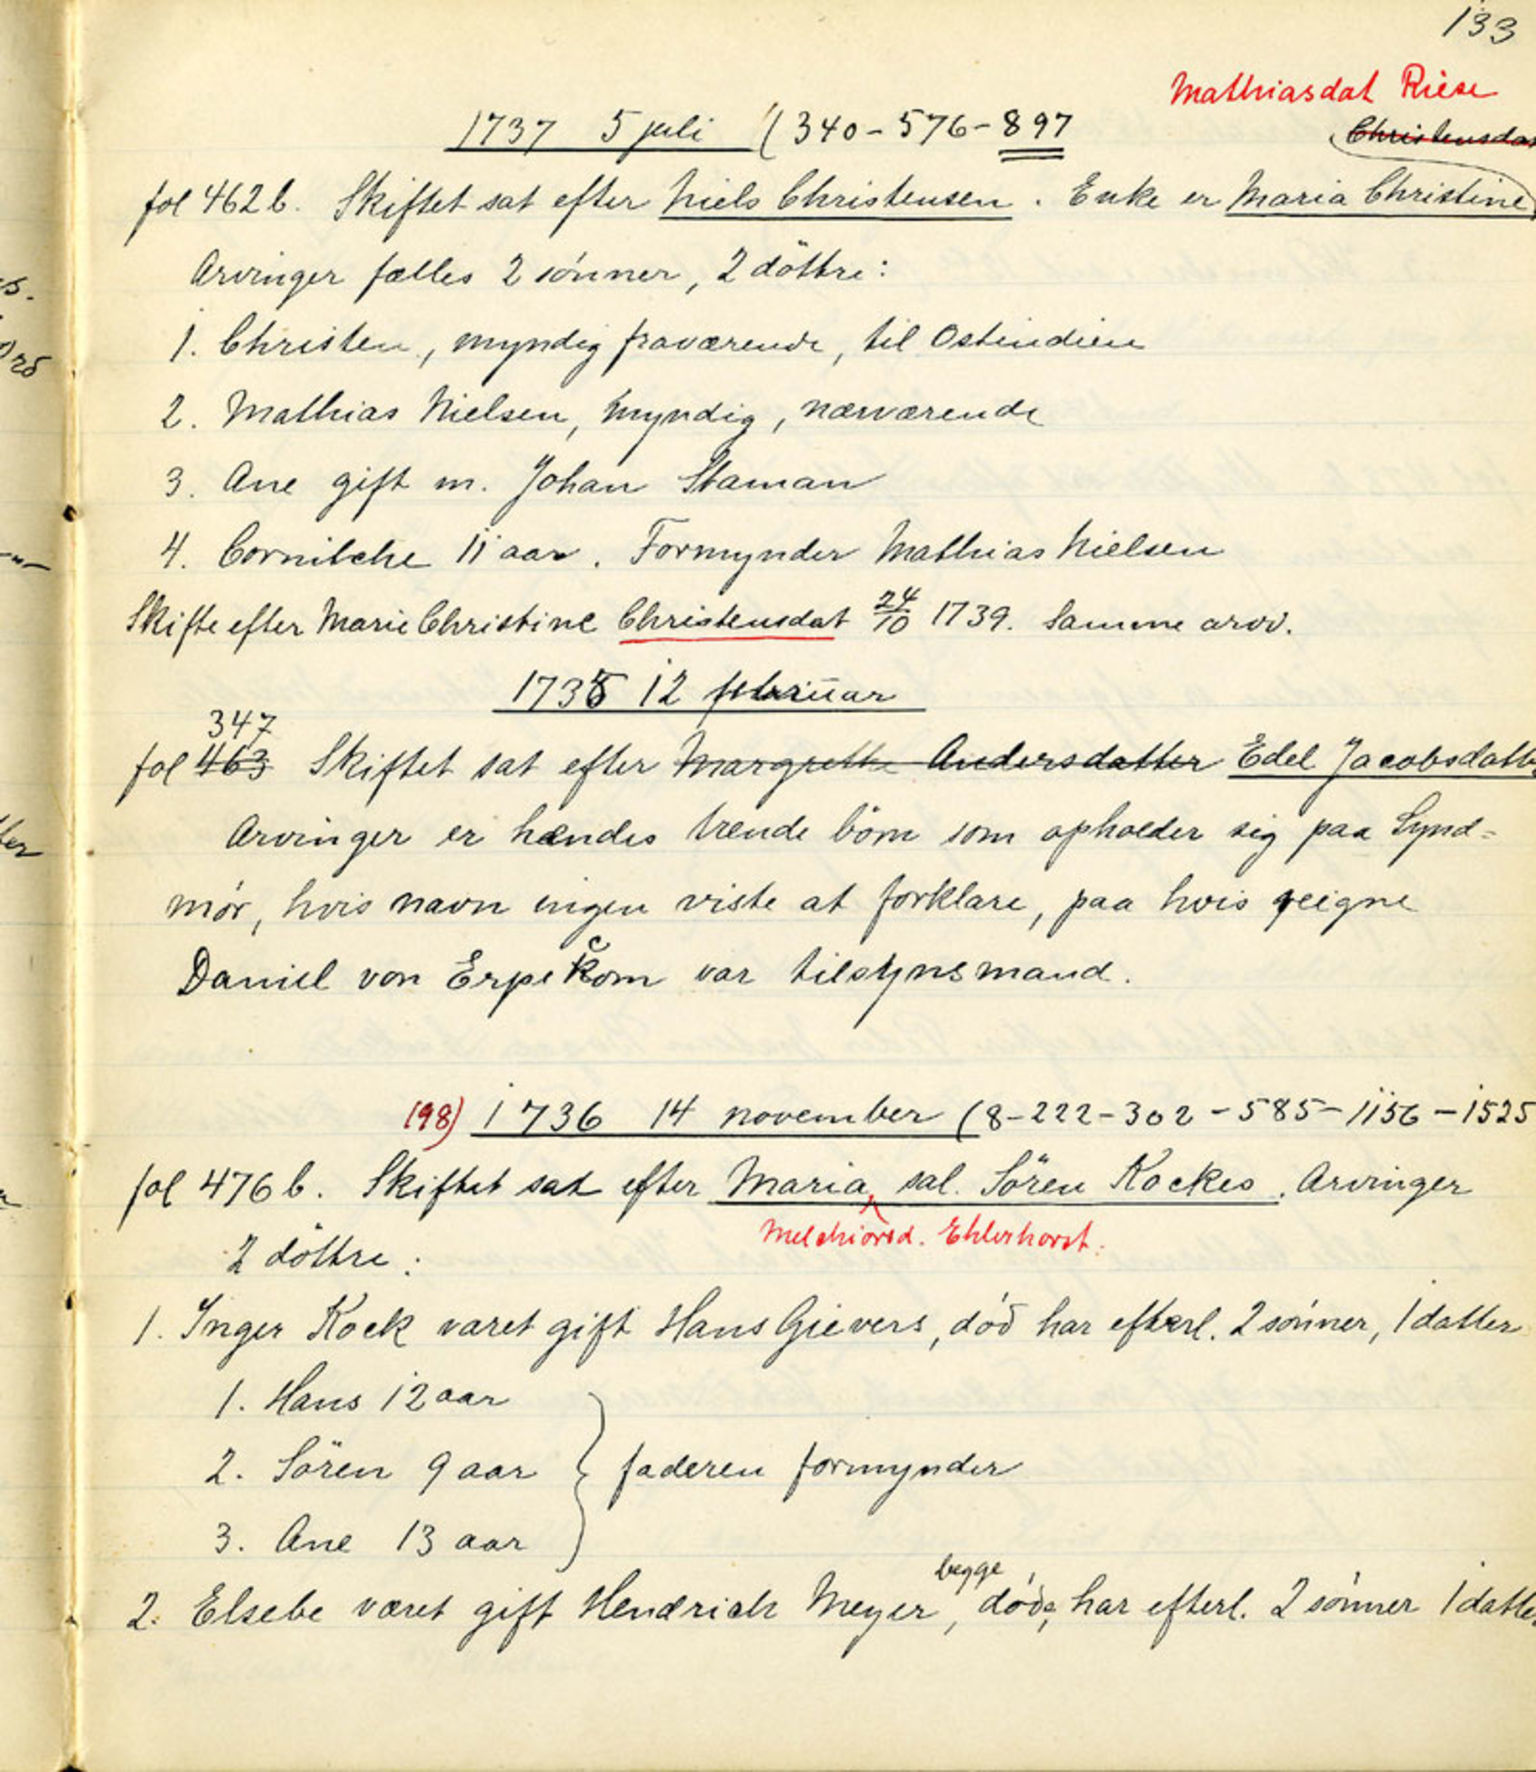 133
Mathiasdat Riese
1737 5 juli (340-576-897
Christensdat
fol 462 b. Skiftet sat efter Niels Christensen. Enke er Maria Christine
Arvinger fælles 2 sónner, 2 döttre:
1. Christen, myndig fraværende, til Ostindien
2. Mathias Nielsen, myndig, nærværende
3. Ane gift m. Johan Staman
4. Cornilche 11 aar. Formynder Mathias Nielsen
Skifte efter Marie Christine Christensdat 24/10 1739. Samme arv.
1735 12 februar
347
fol 463 Skiftet sat efter Margrethe Andersdatter Edel Jacobsdatter
Arvinger er hændes trende börn som opholder sig paa Synd=
mór, hvis navn ingen viste at forklare, paa hvis veigne
Daniel von Erpekom var tilsynsmand.
(98) 1736 14 november (8-222-302-585-1156-1525
fol 476 b. Skiftet sat efter Maria, sal. Sören Kockes. Arvinger
Melchiorsd. Ehlerhorst.
2 döttre:
1. Inger Kock været gift Hans Gievers, död har efterl. 2 sónner, 1 datter
1. Hans 12 aar
2. Sören 9 aar } faderen formynder
3. Ane 13 aar
begge
2. Elsebe været gift Hendrich Meyer, döde, har efterl. 2 sónner 1 datter